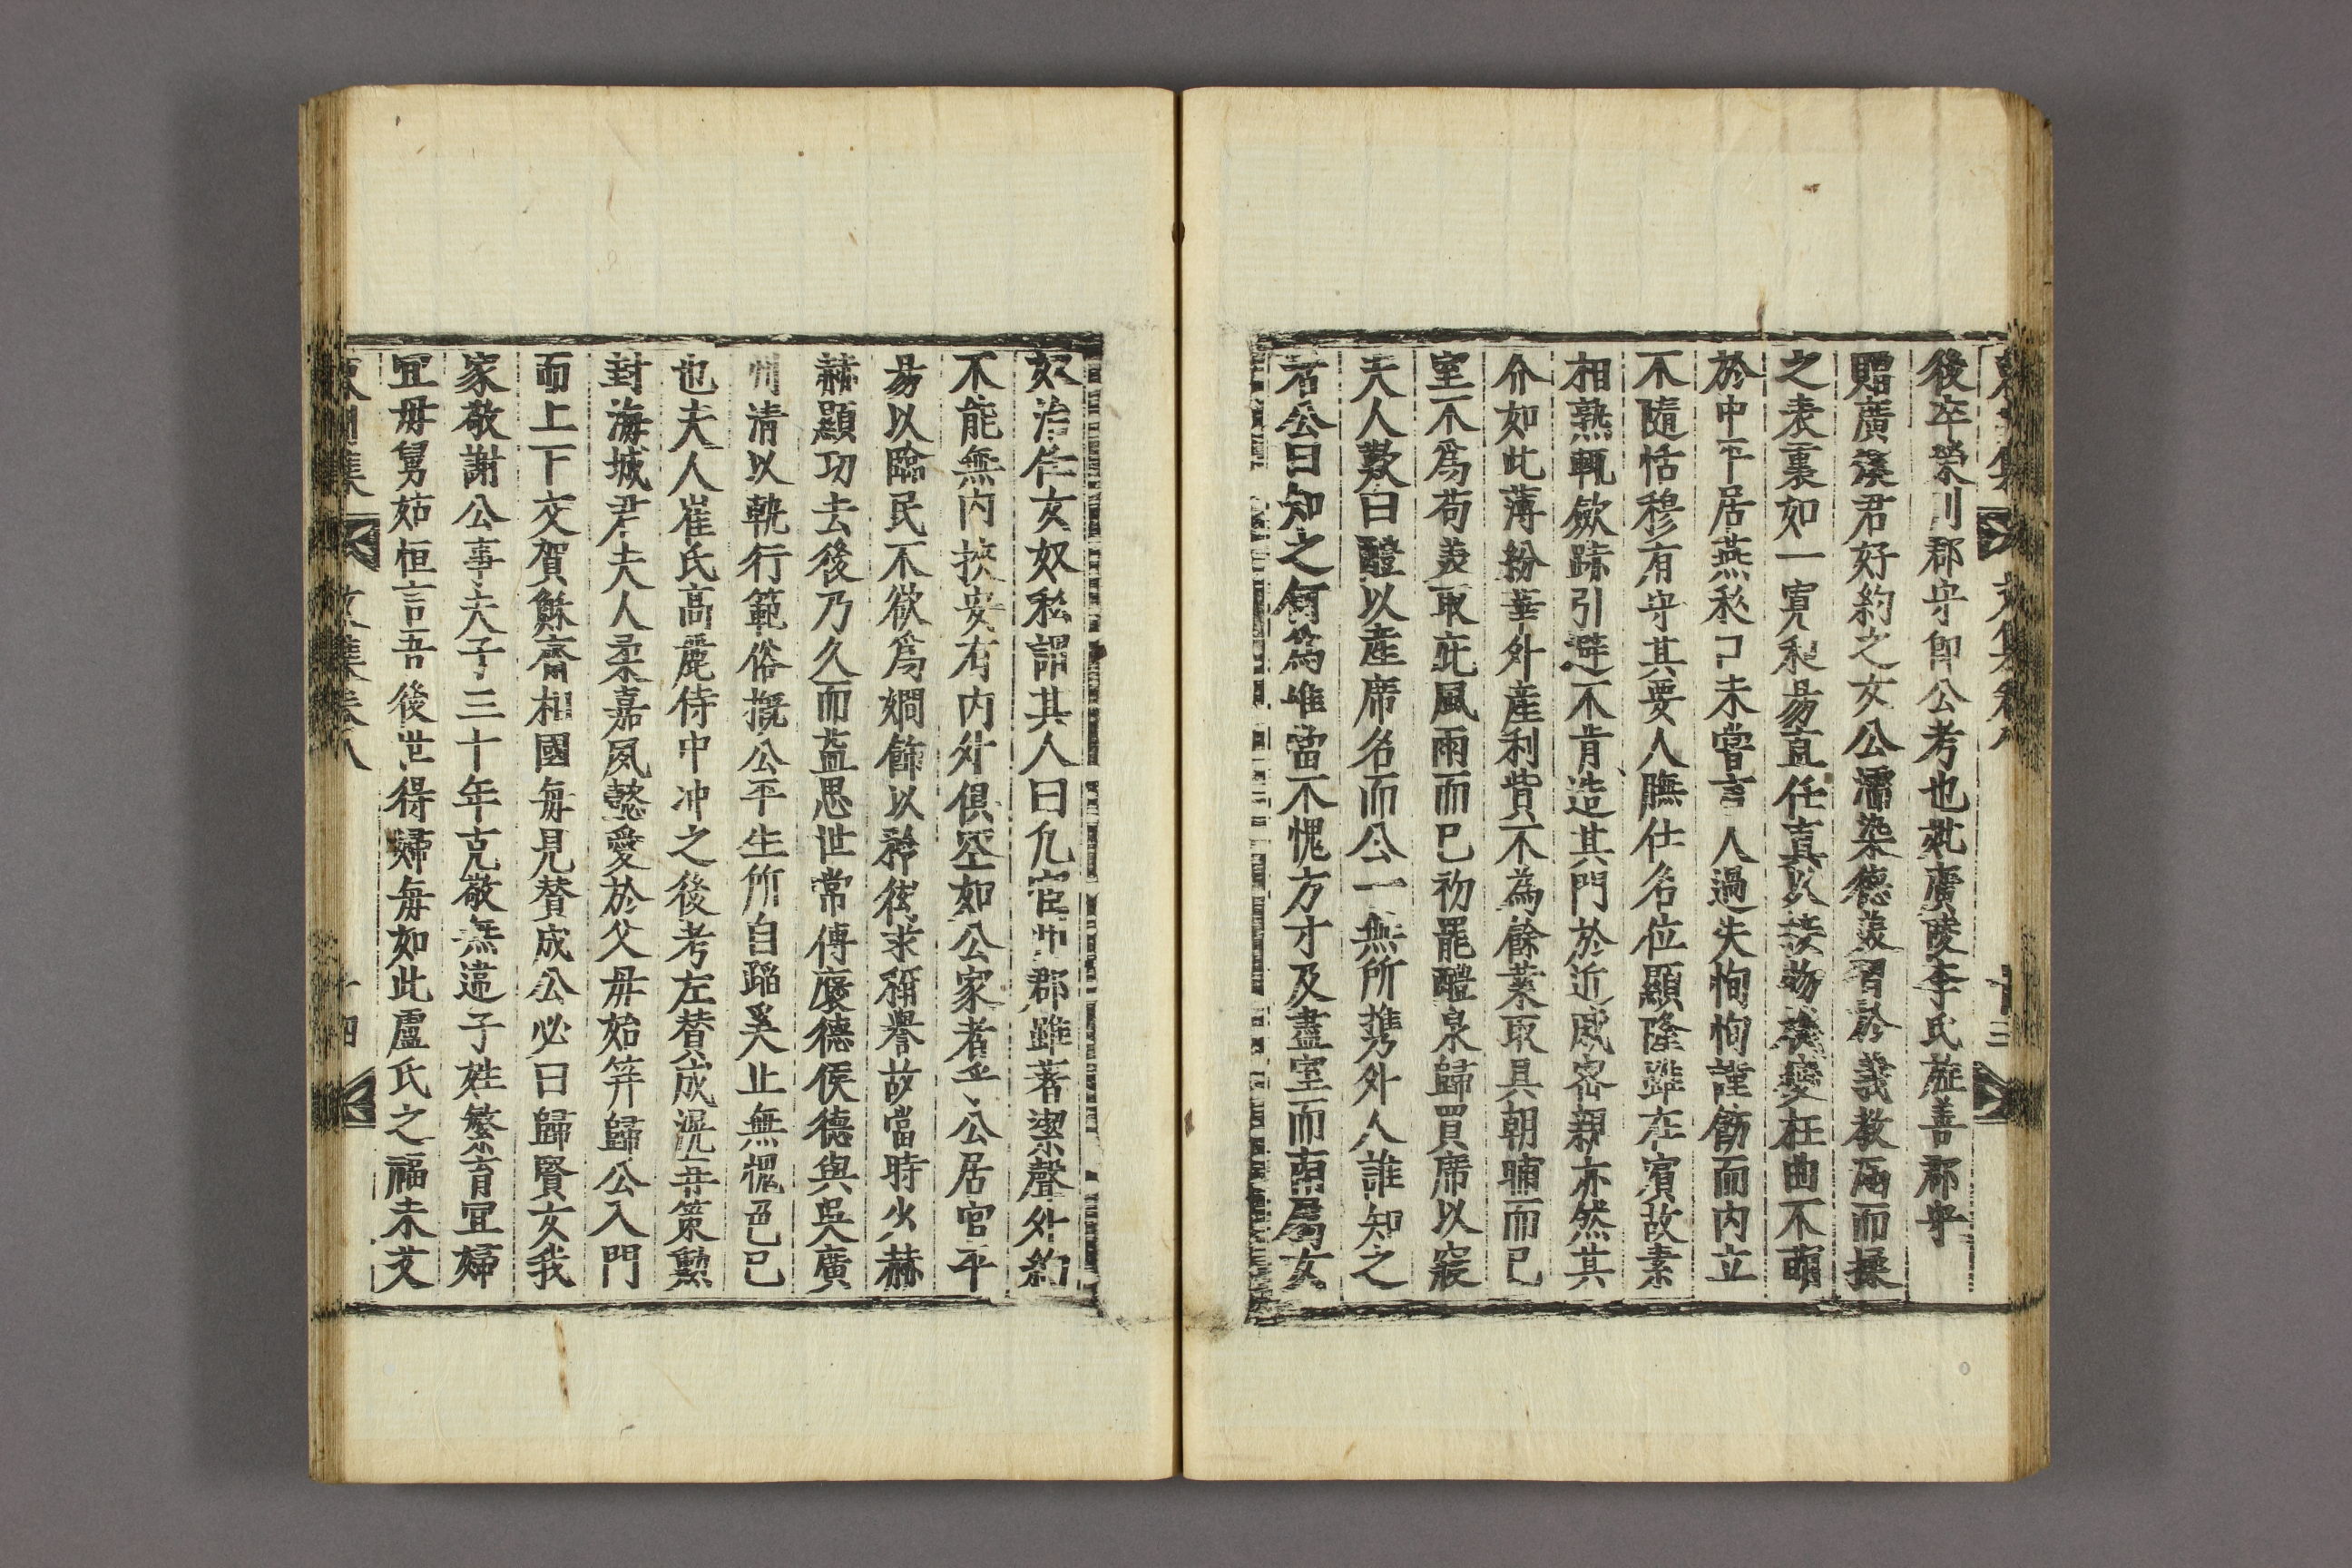 後卒榮川郡守卽公考也妣廣陵李氏旌善郡守
贈廣溪君好約之女公濡染德義習於義教函而操
之表裏如一寬和易直任真以接物機變枉曲不萌
於中平居燕私口未嘗言人過失恂恂謹飭而内立
不隨恬穆有守其要人膴仕名位顯隆雖在賓故素
相熟輒斂跡引避不肯造其門於近戚密親亦然其
介如此薄紛華外産利貲不為餘業取具朝晡而已
室不爲苟美取庇風雨而已初罷醴泉歸買席以寢
夫人歎曰醴以産席名而公一無所携外人誰知之
者公曰知之何爲惟當不愧方寸及盡室而南屬女
奴治作女奴私謂其人曰凡宦州郡雖著潔聲外約
不能無内挾安有内外俱空如公家者乎公居官平
易以臨民不欲爲嫺飾以衿衒求稱譽故當時少赫
赫顯功去後乃久而益思世常傳廢德侯德與吳廣
州清以執行範俗槩公平生所自蹈奚止無愧色已
也夫人崔氏高麗侍中冲之後考左賛成滉再策勲
封海城君夫人柔嘉夙懿愛於父毋始笄歸公入門
而上下交賀穌齋相國毎見賛成公必曰歸賢女我
家敬謝公事夫子三十年克敬無違子姓繁育宜婦
宜毋舅姑恒言吾後世得婦毎如此盧氏之福未艾
東州集 文集卷八 十四